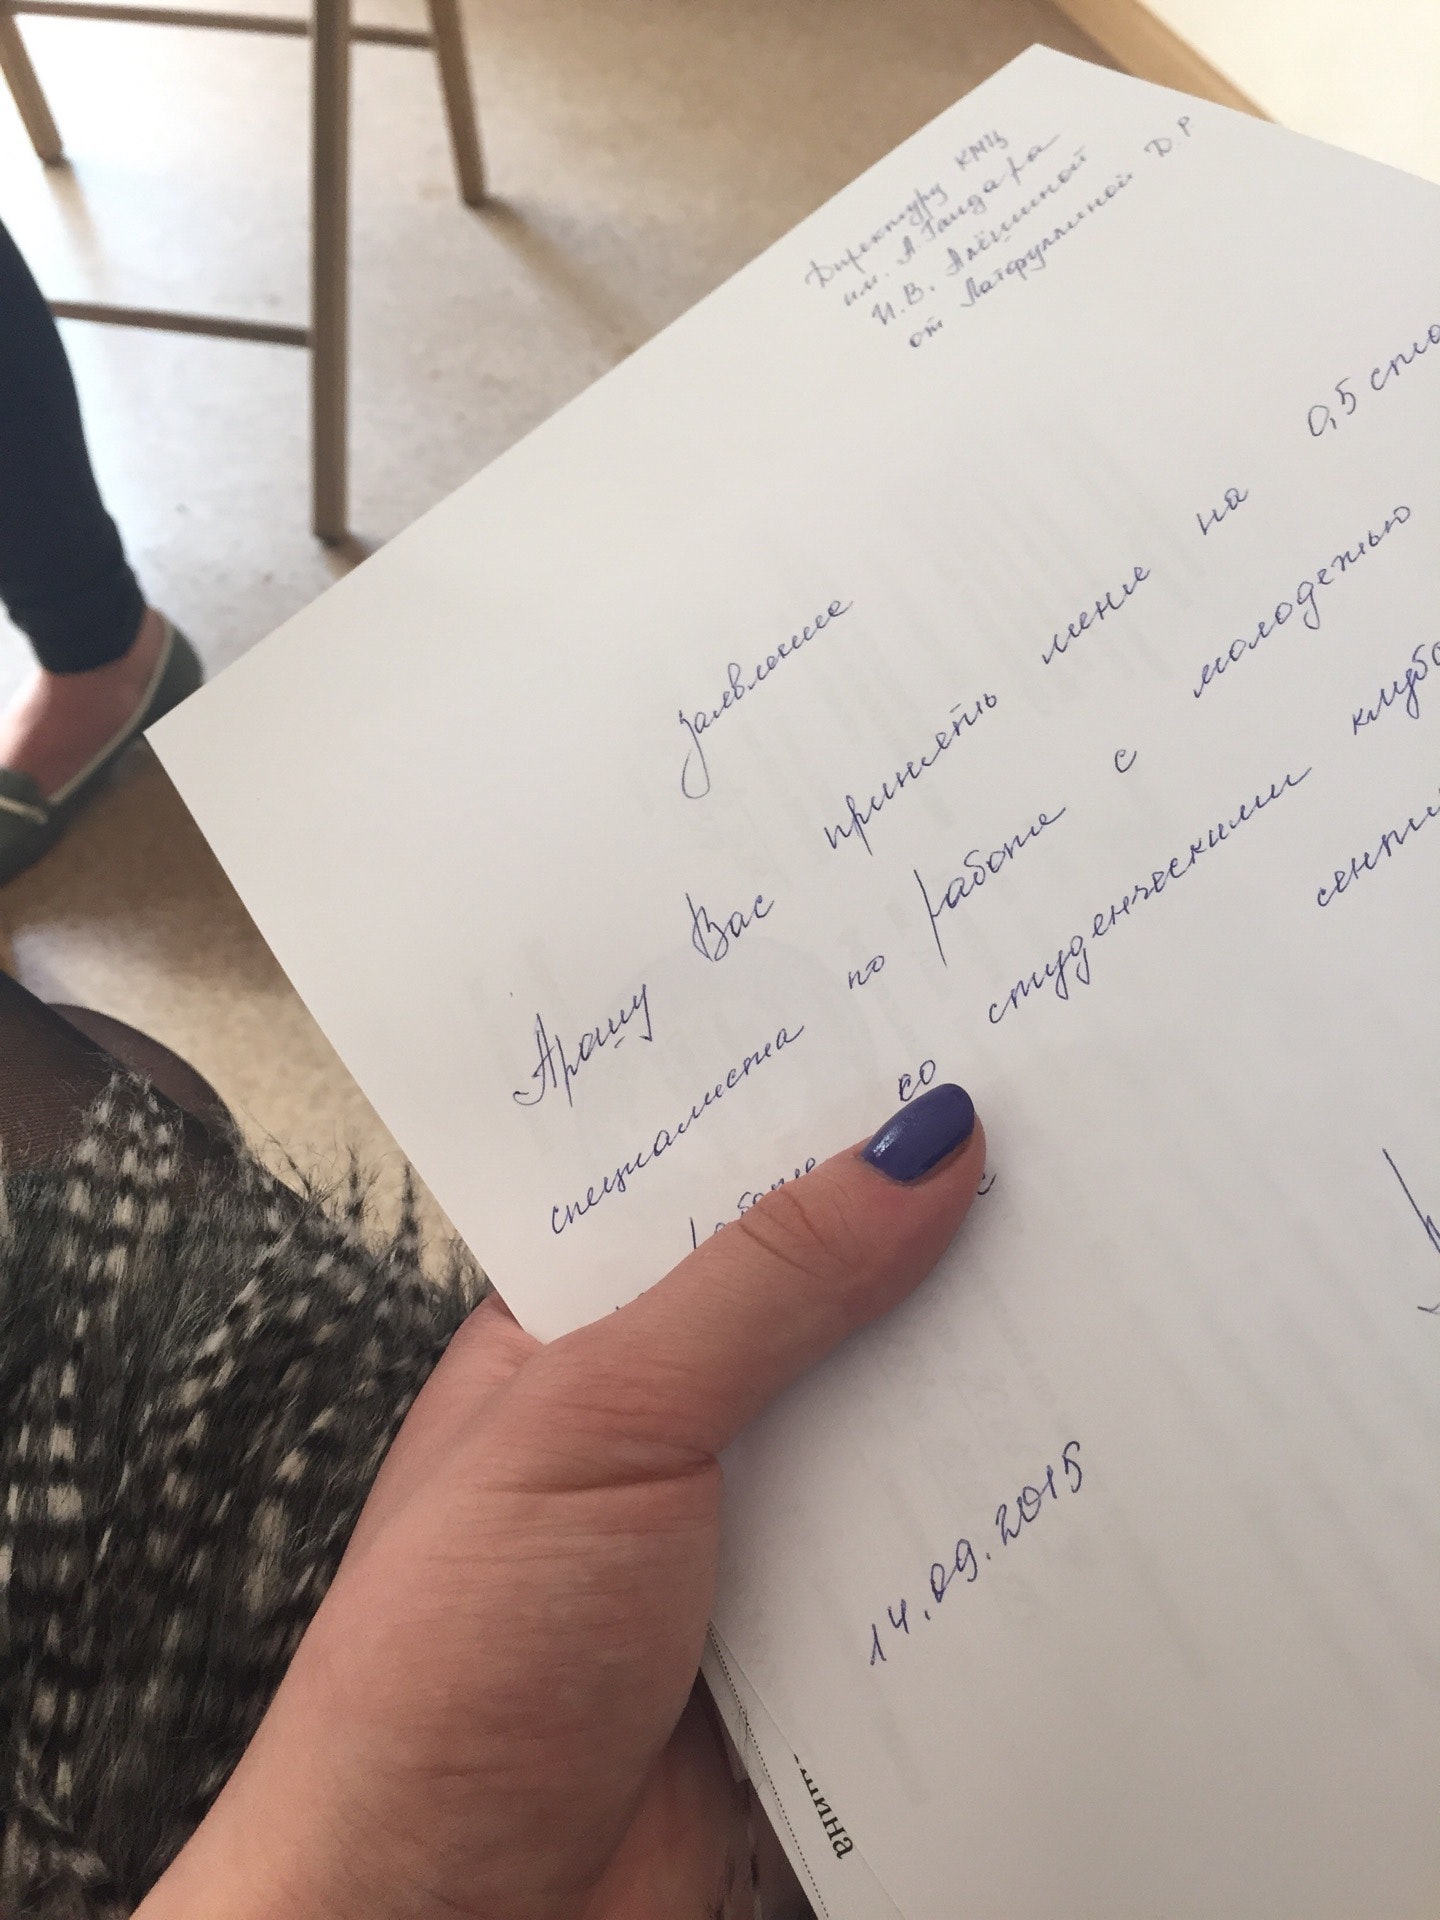 Директору КМЦ
им. А. Гайдара
И. В. Алёшиной
от Латфуллиной Д. Р.
Заявление
Прошу Вас принять меня на 0,5
специалиста по работе с молодежью
со студенческими
с
14.09.2015
шина